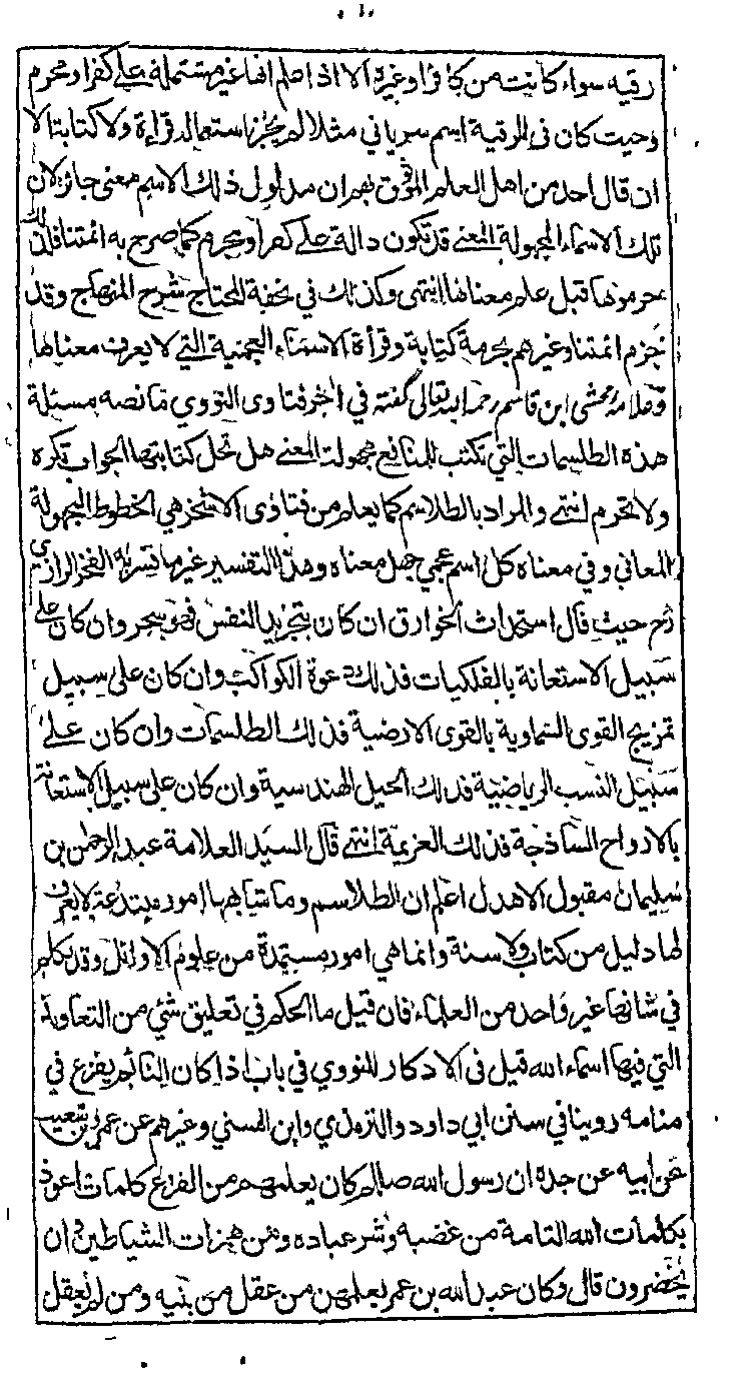 رقيه سواء كانت من كافر او غيره الا اذا علم انها غير مشتملة على كفر او محرم
وحيث كان فى الرقية اسم سرياني مثلا لم يجز استعماله قراءة ولا كتابة الا
ان قال احد من اهل العلم الموثوق بهم ان مدلول ذلك الاسم معنى جائز لان
تلك الاسماء المجهولة المعنى قد تكون دالة على كفر او محرم كما صرح به ائمتنا فلذلك
يحرمونها قبل علم معناها انتهى وكذلك في تحفة المحتاج شرح المنهاج وقد
جزم ائمتنا وغيرهم بحرمة كتابة وقرأة الاسماء العجمية التي لا يعرف معناها
محشى ابن قاسم رحمه الله تعالى في اخر فتاوى النووي ما نصه مسئلة
هذه الطلسمات التي تكتب للمنافع مجهولة المعنى هل تحل كتابتها الجواب تكره
ولا تحرم انتهى والمراد بالطلاسم كما يعلم من فتاوى الا هي الخطوط المجهولة
المعاني وفي معناه كل اسم عجمي جهل معناه وهذا التفسير غير ما فسر به الفخر الرازي
رح حيث قال استحداث الخوارق ان كان بتجريد النفس فهو سحر وان كان على
سبيل الاستعانة بالفلكيات فذلك دعوة الكواكب وان كان على سبيل
تمزيج القوى السماوية بالقوى الارضية فذلك الطلسمات وان كان على
سبيل النسب الرياضية فذلك الحيل الهندسية وان كان على سبيل الاستعانة
بالارواح الساذجة فذلك العزيمة انتهى قال السيد العلامة عبد الرحمن بن
سليمان مقبول الاهدل اعلم ان الطلاسم وما شابهها امور مبتدعة لا يعرف
لها دليل من كتاب ولا سنة وانما هي امور مستمدة من علوم الاوائل وقد تكلم
في شانها غير واحد من العلماء فان قيل ما الحكم في تعليق شئ من التعاويذ
التي فيها اسماء الله قيل فى الاذكار للنووي في باب اذا كان النائم يفزع في
منامه روينا في سنن ابي داود والترمذي وابن السني وغيرهم عن عمرو بن شعيب
عن ابيه عن جده ان رسول الله صلالم كان يعلمهم من الفزع كلمات اعوذ
بكلمات الله التامة من غضبه وشر عباده ومن همزات الشياطين وان
يحضرون قال وكان عبد الله بن عمر يعلمهن من عقل من بنيه ومن لم يعقل